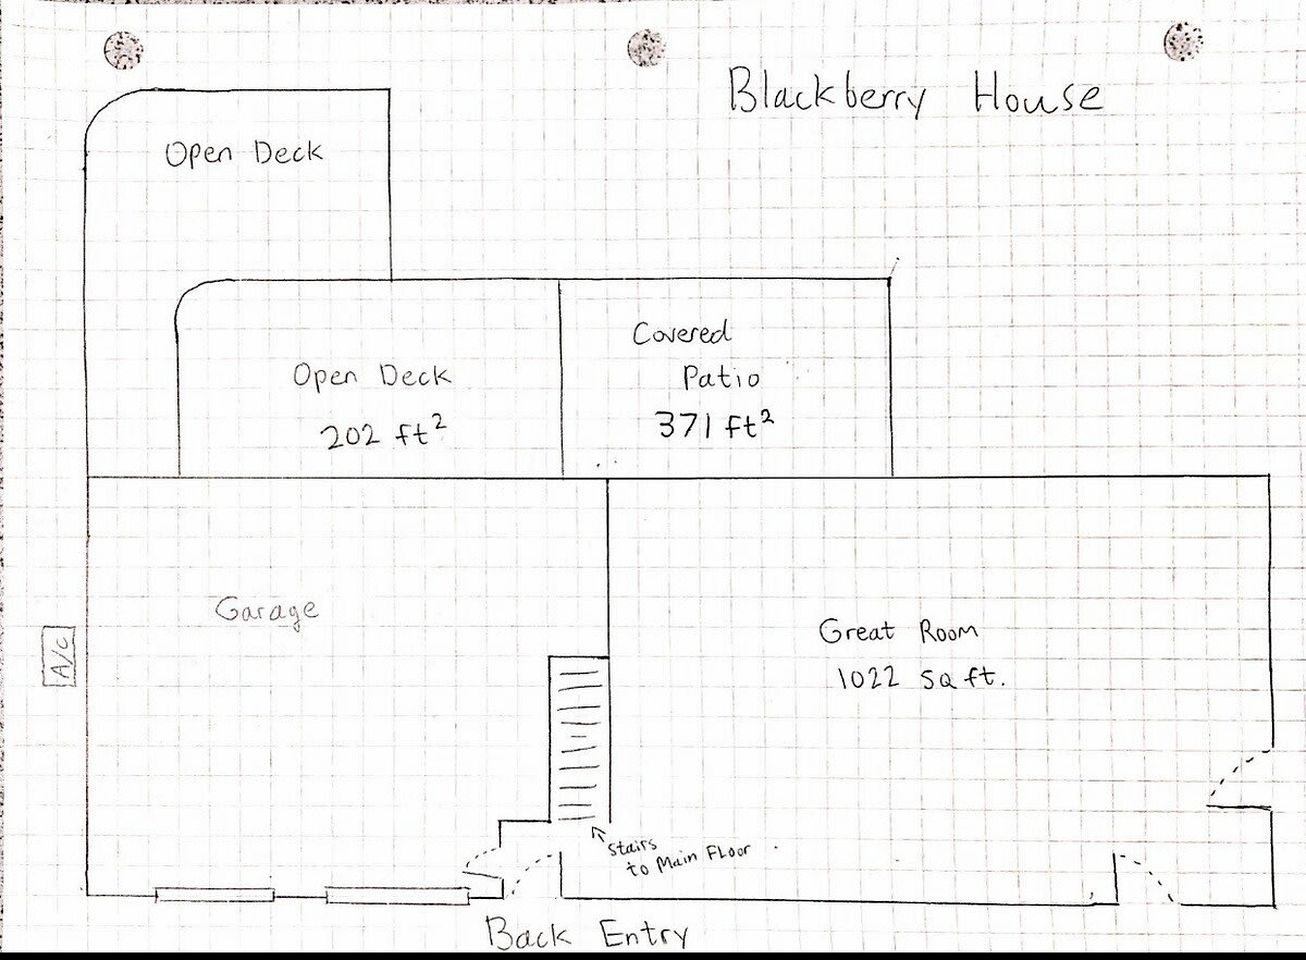 Blackberry House
Open Deck
Open Deck
202 ft²
Covered
Patio
371 ft²
Garage
A/C
Great Room
1022 sq ft.
Stairs
to Main Floor
Back Entry